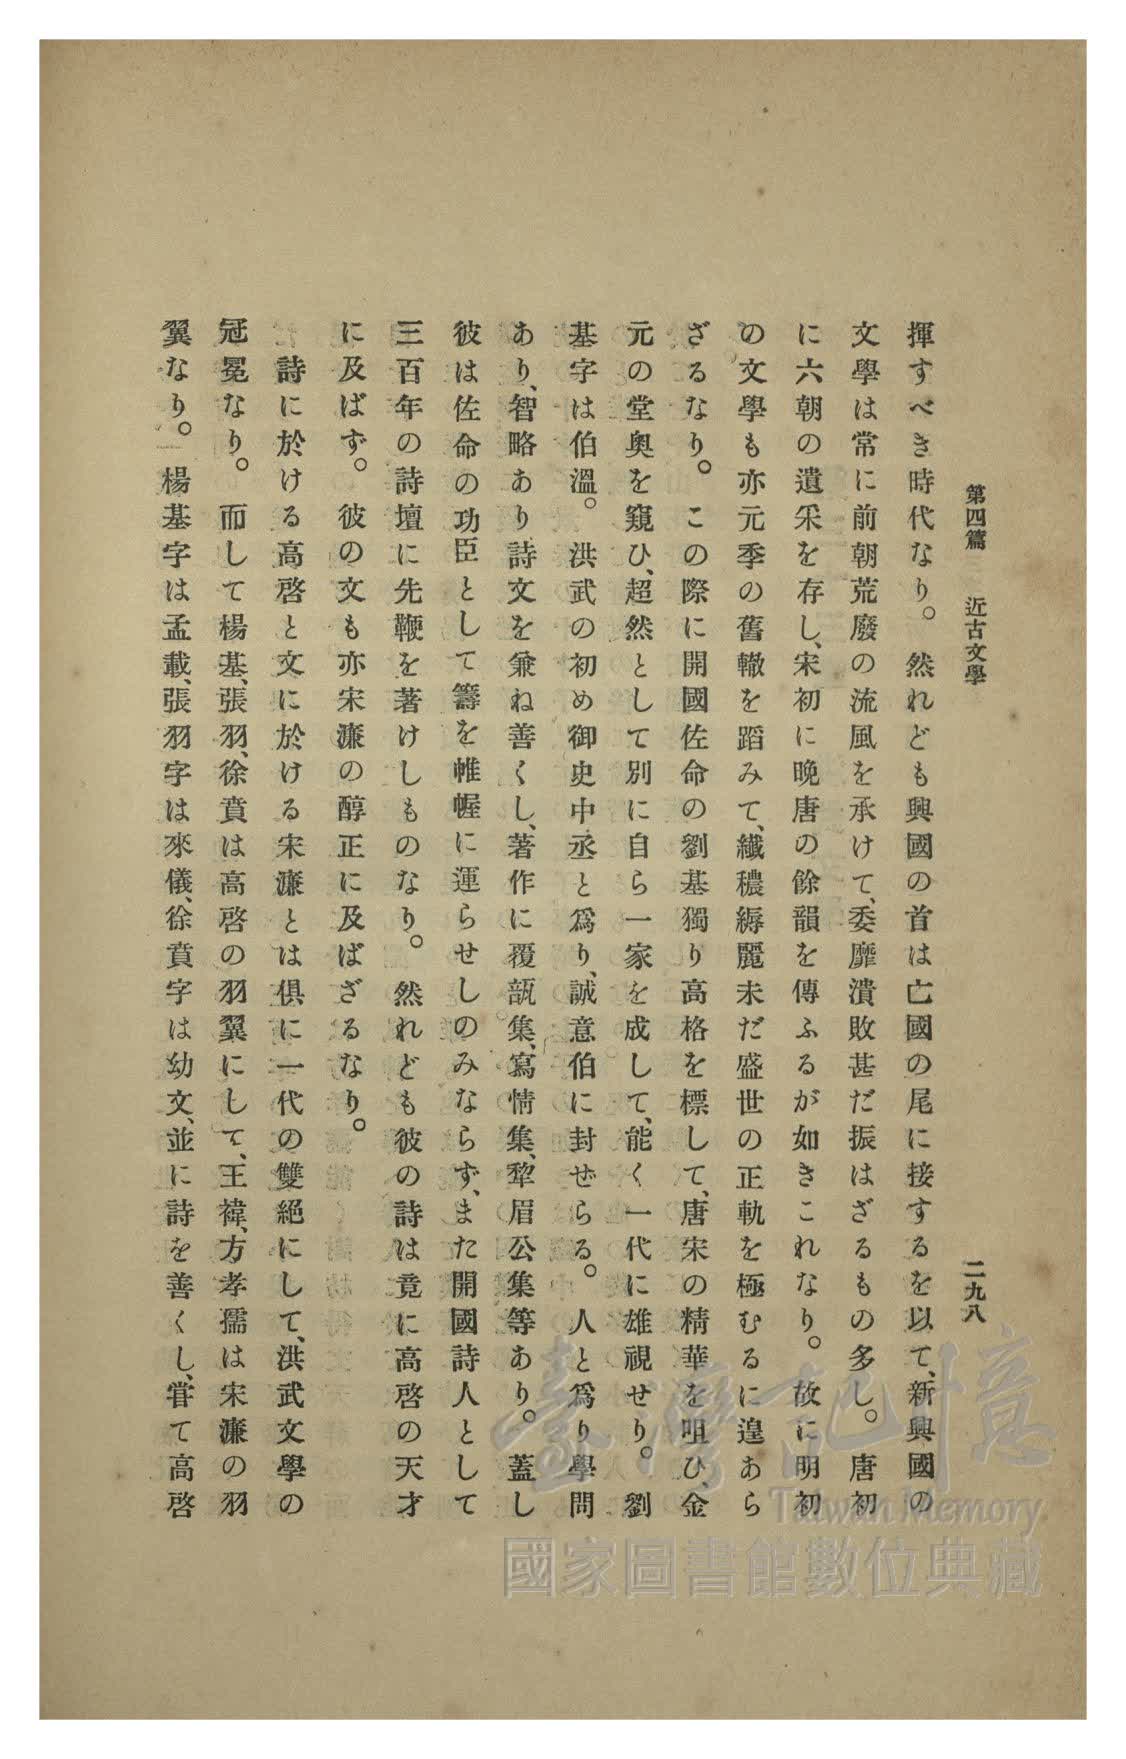 第四篇 近古文學 二九八
揮すべき時代なり。然れども興國の首は亡國の尾に接するを以て、新興國の
文學は常に前朝荒廢の流風を承けて、委靡潰敗甚だ振はざるもの多し。唐初
に六朝の遺釆を存し、宋初に晩唐の餘韻を傳ふるが如きこれなり。故に明初
の文學も亦元季の舊轍を蹈みて、纖穠縟麗未だ盛世の正軌を極むるに遑あら
ざるなり。この際に開國佐命の劉基獨り高格を標して、唐宋の精華を咀ひ、金
元の堂奥を窺ひ、超然として別に自ら一家を成して、能く一代に雄視せり。劉
基字は伯溫。洪武の初め御史中丞と爲り、誠意伯に封ぜらる。人と爲り學問
あり、智略あり詩文を兼ね善くし、著作に覆瓿集、寫情集、犂眉公集等あり。蓋し
彼は佐命の功臣として籌を帷幄に運らせしのみならず、また開國詩人として
三百年の詩壇に先鞭を著けしものなり。然れども彼の詩は竟に高啓の天才
に及ばず。彼の文も亦宋濂の醇正に及ばざるなり。
詩に於ける高啓と文に於ける宋濂とは倶に一代の雙絕にして、洪武文學の
冠冕なり。而して楊基、張羽、徐賁は高啓の羽翼にして、王褘、方孝孺は宋濂の羽
翼なり。楊基字は孟載、張羽字は來儀、徐賁字は幼文、並に詩を善くし、甞て高啓
臺灣記憶
Taiwan Memory
國家圖書館數位典藏